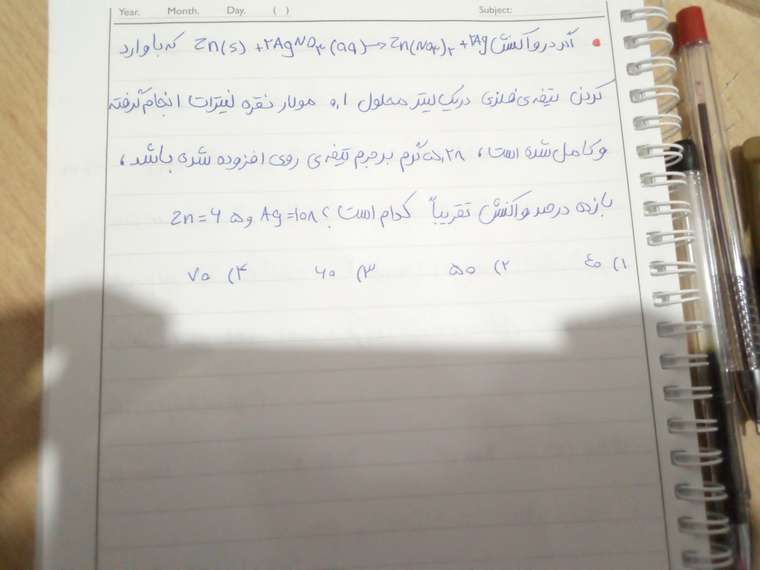 Year. Month. Day. ( ) Subject:
• اگر در واکنش Zn(s) + ۲AgNO۳(aq) → Zn(NO۳)۲ + ۲Ag که با وارد
کردن تیغه‌ی فلزی در یک لیتر محلول ۰٫۱ مولار نقره نیترات انجام گرفته
و کامل شده است، ۵٫۲۸ گرم بر جرم تیغه‌ی روی افزوده شده باشد،
بازده درصد واکنش تقریباً کدام است؟ Ag=۱۰۸ و Zn=۶۵
۱) ۴۰ ۲) ۵۰ ۳) ۶۰ ۴) ۷۰